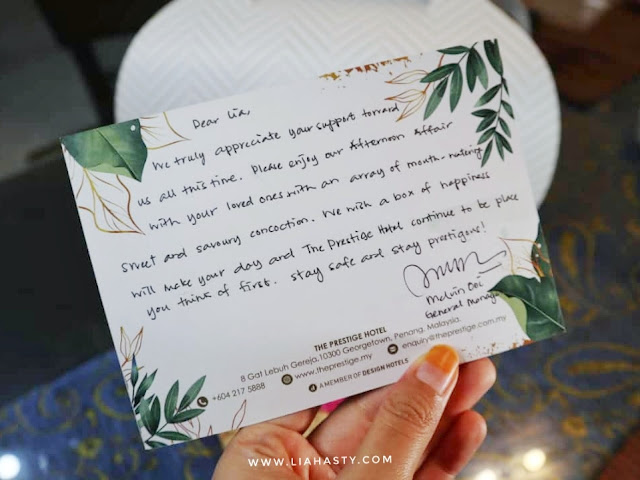 Dear Lia,
We truly appreciate your support toward
us all this time. Please enjoy our Afternoon Affair
with your loved ones with an array of mouth-watering
sweet and savoury concoction. We wish a box of happiness
will make your day and The Prestige Hotel continue to be place
you think of first. Stay safe and stay prestigous!
Melvin Ooi
General Manager
THE PRESTIGE HOTEL
8 Gat Lebuh Gereja,10300 Georgetown, Penang, Malaysia.
+604 217 5888 www.theprestige.my enquiry@theprestige.com.my
A MEMBER OF DESIGN HOTELS
WWW.LIAHASTY.COM